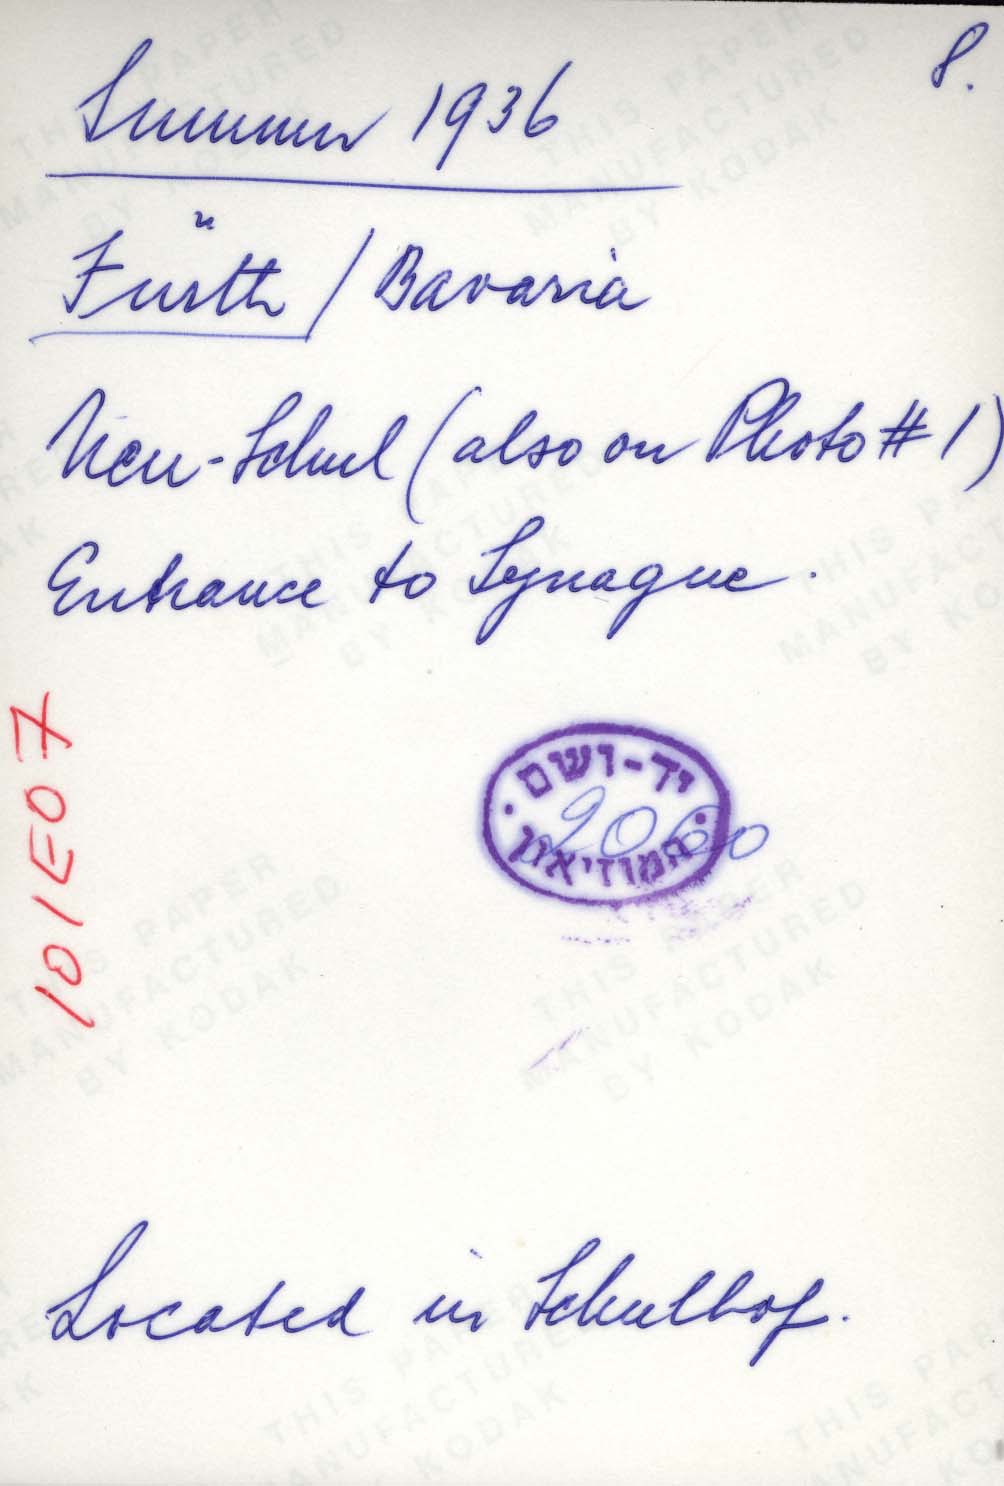 8.
Summer 1936
Fürth / Bavaria
Neu-Schul (also on Photo # 1)
Entrance to Synague.
יד-ושם
2060
המוזיאון
101E07
Located in Schulhof.
THIS PAPER
MANUFACTURED
BY KODAK